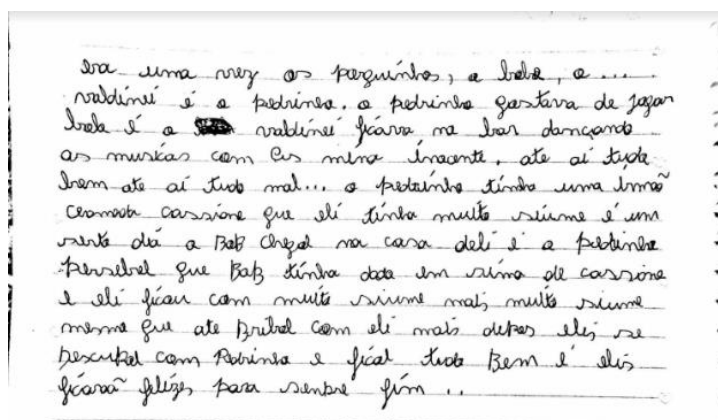 era uma vez os porquinhos, o bob, o ...
valdinei é o pedrinho. o pedrinho gostava de jogar
bola é o valdinei ficava no bar dançando
as musicas com as mina inocente. ate aí tudo
bem ate aí tudo mal... o pedrinho tinha uma irmã
cassione que eli tinha muito siume é um
serto dia o Bob chegol na casa deli é o pedrinho
persebel que Bob tinha dado em sima de cassione
e eli ficou com muito siume mais muito siume
mesmo que ate Bribol com eli mais depos elis se
Descupol com Pedrinho e ficol tudo Bem é elis
ficarão felizes para senpre fim ..